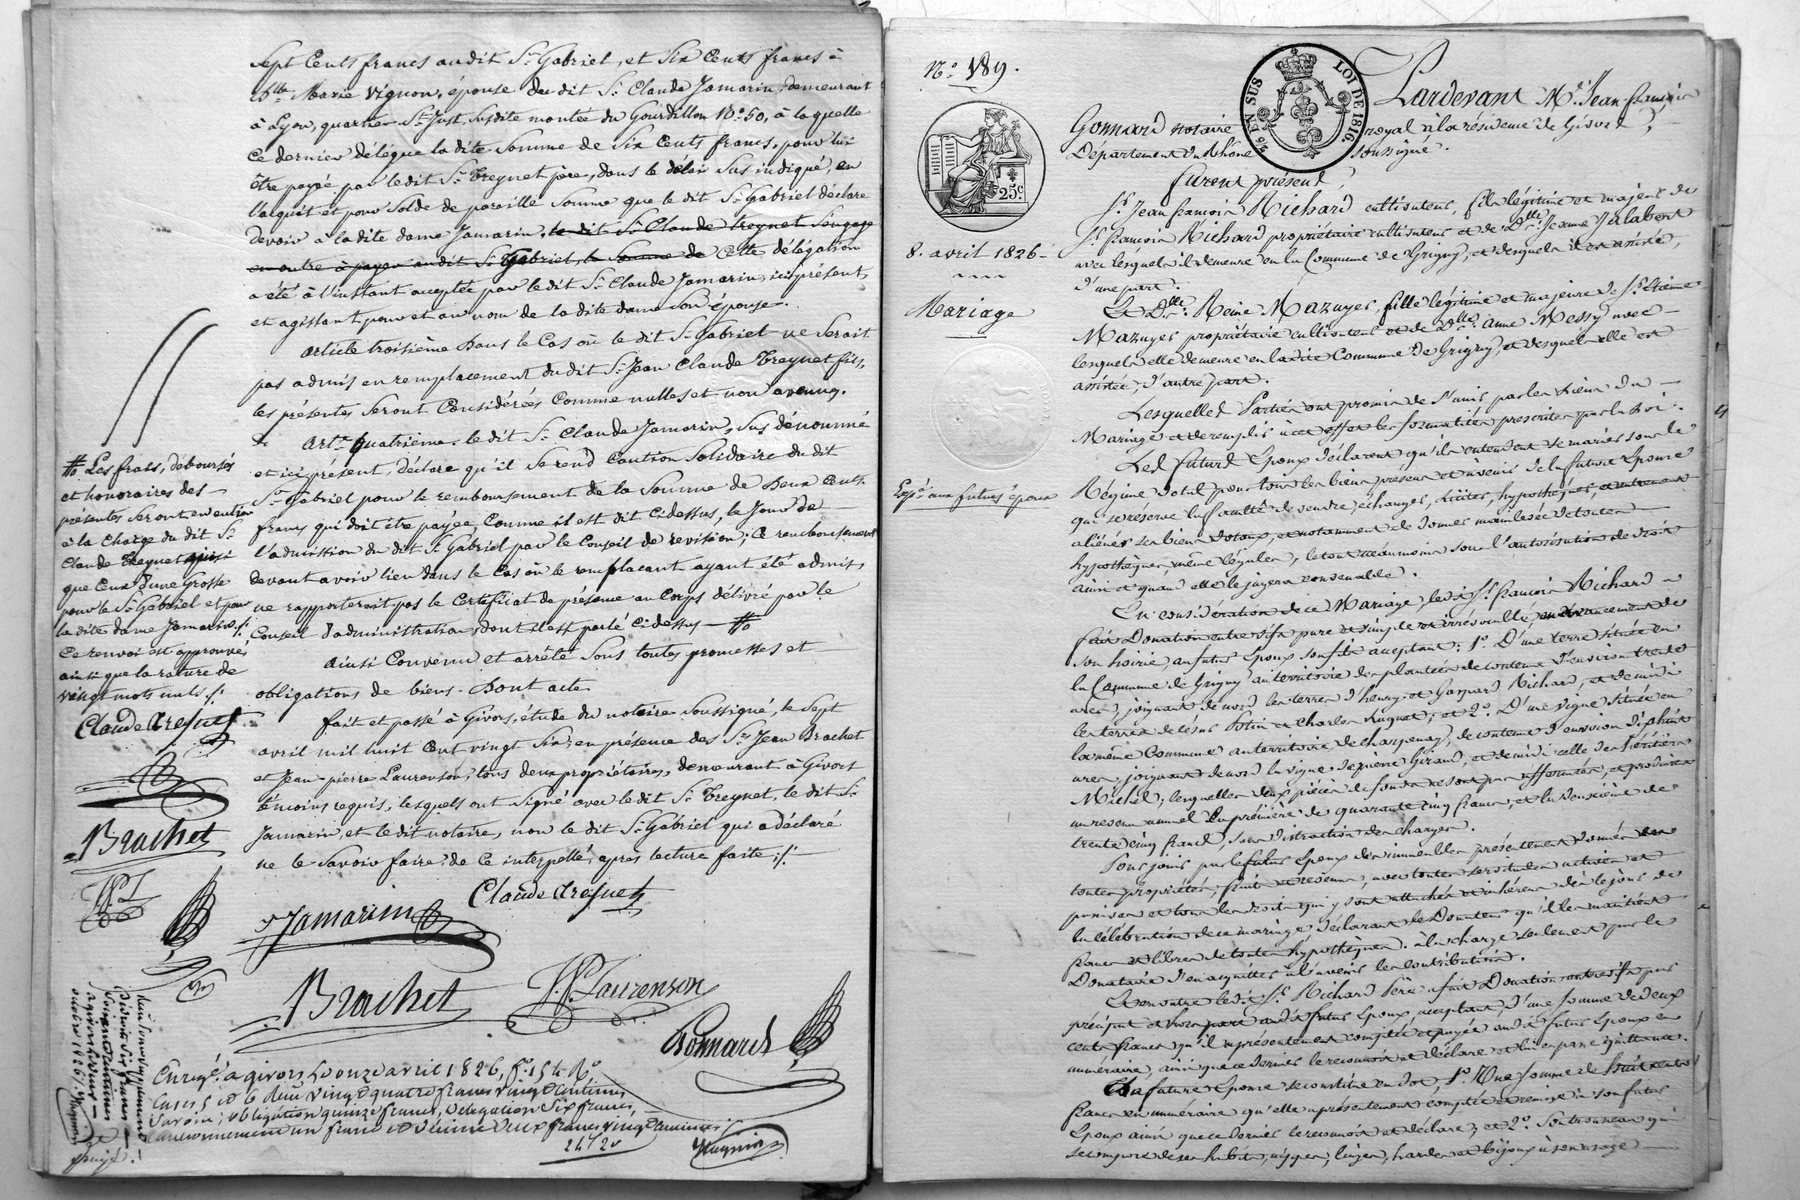 Sept Cents francs audit Sr. Gabriel, et Six Cents francs à
Dlle. Marie Vignon, épouse du dit Sr. Claude Jamarin, demeurant
à Lyon, quartier St. Just, susdite montée du Gourdillon No. 50, à laquelle
ce dernier délègue la dite Somme de Six Cents francs, pour lui
être payée par le dit Sr. Treynet père, dans le délai sus indiqué, en
l'acquit et pour solde de pareille Somme que le dit Sr. Gabriel déclare
devoir à la dite dame Jamarin, le dit Sr. Claude Treynet s'engage
en outre à payer audit Sr. Gabriel, la Somme de cette délégation
a été à l'instant acceptée par le dit Sr. Claude Jamarin, ici présent,
et agissant pour et au nom de la dite dame son épouse.
Article troisième Dans le Cas où le dit Sr. Gabriel ne serait
pas admis en remplacement du dit Sr. Jean Claude Treynet fils,
les présentes seront Considérées Comme nulles et non avenues.
Arte. quatrième. le dit Sr. Claude Jamarin, sus dénommé
et ici présent, Déclare qu'il se rend Caution Solidaire du dit
Sr. Gabriel pour le remboursement de la Somme de Deux Cents
francs qui doit être payée Comme il est dit ci dessus, le Jour de
l'admission du dit Sr. Gabriel par le Conseil de revision; Ce remboursement
devant avoir lieu dans le Cas où le remplaçant ayant été admis,
ne rapporterait pas le Certificat de présence au Corps délivré par le
Conseil d'administration, dont il est parlé ci dessus
Ainsi Convenu et arrêté sous toutes promesses et
obligations de biens. Dont acte
fait et passé à Givors, étude du notaire soussigné, le sept
avril mil huit cent vingt Six; en présence des Srs. Jean Brachet
et Jean-pierre Laurenson, tous deux propriétaires, demeurant à Givors
témoins requis, lesquels ont signé avec le dit Sr. Treynet, le dit Sr.
Jamarin, et le dit notaire, non le dit Sr. Gabriel qui a déclaré
ne le savoir faire, de ce interpellé, après lecture faite
Les frais, déboursés
et honoraires des
présentes seront en entier
à la charge du dit Sr.
Claude Treynet ainsi
que Ceux d'une Grosse
pour le Sr. Gabriel et pour
la dite dame Jamarin
Ce renvoi est approuvé
ainsi que la rature de
vingt mots nuls
Claude Treynet
Brachet
J.P.L
Claude Treynet
Jamarin
Brachet
J.P. Laurenson
Gonnard
Enregé. à Givors le onze avril 1826, fo. 154 Ro.
Cases 5 et 6 Reçu vingt quatre francs vingt Centimes
Savoir; obligation quinze francs, délégation Six francs,
Cautionnement un franc et décime deux francs vingt Centimes
24f 20
No. 189.
25c.
8. avril 1826
Mariage
Expé. aux futurs époux
EN SUS
LOI DE 1816.
Pardevant Me. Jean françois
Gonnard notaire royal à la résidence de Givors
Département du Rhône soussigné.
furent présents
Sr. Jean françois Richard cultivateur, fils légitime et majeur de
Sr. françois Richard propriétaire cultivateur et de Dlle. Jeanne Jalabert
avec lesquels il demeure en la Commune de Grigny, et desquels il est assisté,
d'une part.
Et Dlle. Reine Mazuyer, fille légitime et majeure de Sr. Etienne
Mazuyer propriétaire cultivateur et de Dlle. anne Messy avec
lesquels elle demeure en la dite Commune de Grigny, et desquels elle est
assistée; d'autre part.
Lesquelles Parties ont promis de s'unir par les Liens du
Mariage et de remplir à cet effet les formalités prescrites par la Loi.
Les futurs Epoux déclarent qu'ils entendent se marier sous le
Régime dotal pour tous les biens présens et à venir de la future Epouse
qui se réserve la faculté de vendre, échanger, liciter, hypothéquer, et autrement
aliéner ses biens dotaux, et notamment de donner mainlevée de toutes
hypothèques même légales; le tout néanmoins sous l'autorisation de droit
ainsi et quand elle le jugera convenable.
En considération de ce Mariage, le dit Sr. françois Richard
fait Donation entre vifs pure et simple et irrévocable, en avancement de
son hoirie au futur Epoux son fils acceptant: 1o. D'une terre située en
la Commune de Grigny au territoire des plantées de contenue d'environ trente
ares, joignant de nord les terres d'henry et Gaspard Richard, et de midi
les terres de et Charles Ruguet; et 2o. D'une vigne située en
la même Commune au territoire de charpenay, de contenue d'environ dix huit
ares, joignant de nord la vigne de pierre Giraud, et de midi celle des héritiers
Michel; lesquelles deux pièces de fonds ne sont pas affermées, et produisent
un revenu annuel la première de quarante cinq francs, et la deuxième de
trente cinq francs, sans distraction des charges.
Pour jouir par le futur Epoux des immeubles présentement donnés en
toutes propriétés, fruits et revenus, avec toutes servitudes actives et
passives et tous les droits qui y sont attachés et inhérens dès le jour de
la célébration de ce mariage, déclarant le Donateur qu'il les maintient
francs et libres de toutes hypothèques: à la charge seulement par le
Donataire d'en acquitter à l'avenir les contributions.
Et en outre le dit Sr. Richard Père a fait Donation entre vifs par
préciput et hors part audit futur Epoux acceptant, d'une somme de deux
cents francs qu'il a présentement comptée et payée audit futur Epoux en
numéraire, ainsi que ce dernier le reconnait et déclare et lui en passe quittance.
La future Epouse se constitue en dot, 1o. Une somme de huit cents
francs en numéraire qu'elle a présentement comptée et remise à son futur
Epoux ainsi que ce dernier le reconnait et déclare; et 2o. Son trousseau qui
se compose de ses habits, nippes, linges, hardes et bijoux à son usage